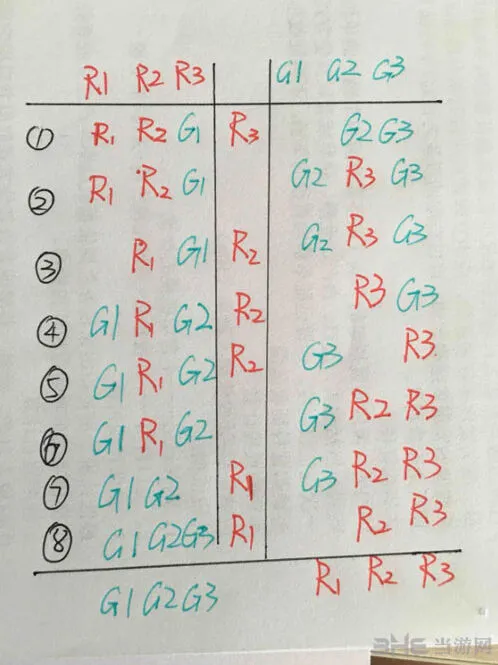 R1 R2 R3 G1 G2 G3
① R1 R2 G1 R3 G2 G3
② R1 R2 G1 G2 R3 G3
③ R1 G1 R2 G2 R3 G3
④ G1 R1 G2 R2 R3 G3
⑤ G1 R1 G2 R2 G3 R3
⑥ G1 R1 G2 G3 R2 R3
⑦ G1 G2 R1 G3 R2 R3
⑧ G1 G2 G3 R1 R2 R3
G1 G2 G3 R1 R2 R3
当游网